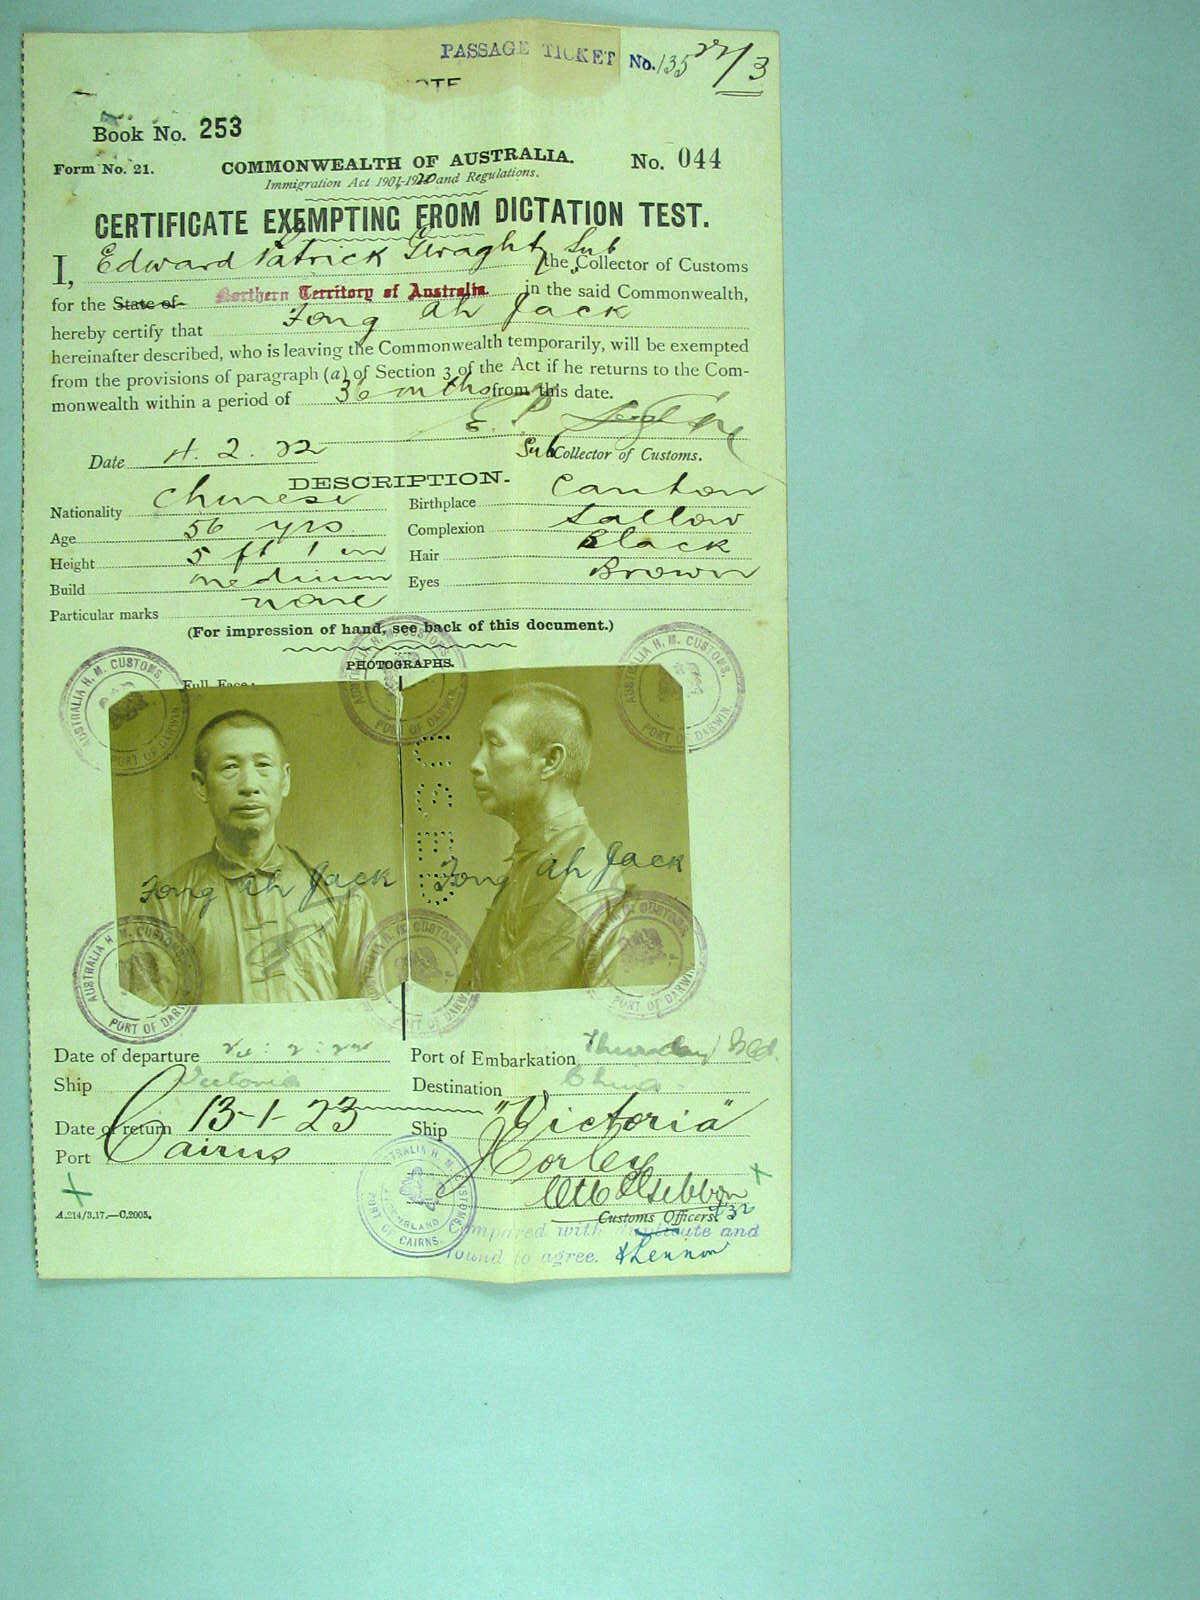 PASSAGE TICKET No. 135 22/3
Book No. 253
Form No. 21. COMMONWEALTH OF AUSTRALIA. No. 044
Immigration Act 1901-1920 and Regulations.
CERTIFICATE EXEMPTING FROM DICTATION TEST.
I, Edward Patrick the Sub Collector of Customs
for the State of Northern Territory of Australia in the said Commonwealth,
hereby certify that Fong Ah Jack
hereinafter described, who is leaving the Commonwealth temporarily, will be exempted
from the provisions of paragraph (a) of Section 3 of the Act if he returns to the Com-
monwealth within a period of 36 onths from this date.
E. P.
Date 4. 2. 22 Sub Collector of Customs.
DESCRIPTION.
Nationality Chinese Birthplace Canton
Age 56 yrs Complexion Sallow
Height 5 ft 1 in Hair Black
Build medium Eyes Brown
Particular marks none
(For impression of hand, see back of this document.)
PHOTOGRAPHS.
Full Face:
AUSTRALIA H. M. CUSTOMS. PORT OF DARWIN
AUSTRALIA H. M. CUSTOMS. PORT OF DARWIN
AUSTRALIA H. M. CUSTOMS. PORT OF DARWIN.
Fong Ah Jack Fong Ah Jack
AUSTRALIA H. M. CUSTOMS PORT OF DARWIN
AUSTRALIA H. M. CUSTOMS PORT OF DARWIN
AUSTRALIA H. M. CUSTOMS PORT OF DARWIN
Date of departure Port of Embarkation Thursday Isld.
Ship Victoria Destination China
Date of return 13-1-23 Ship "Victoria"
Port Cairns
Customs Officers.
A.214/3.17.—C.2005.
AUSTRALIA H. M. CUSTOMS. QUEENSLAND PORT OF CAIRNS.
Compared with and
found to agree. Lennon